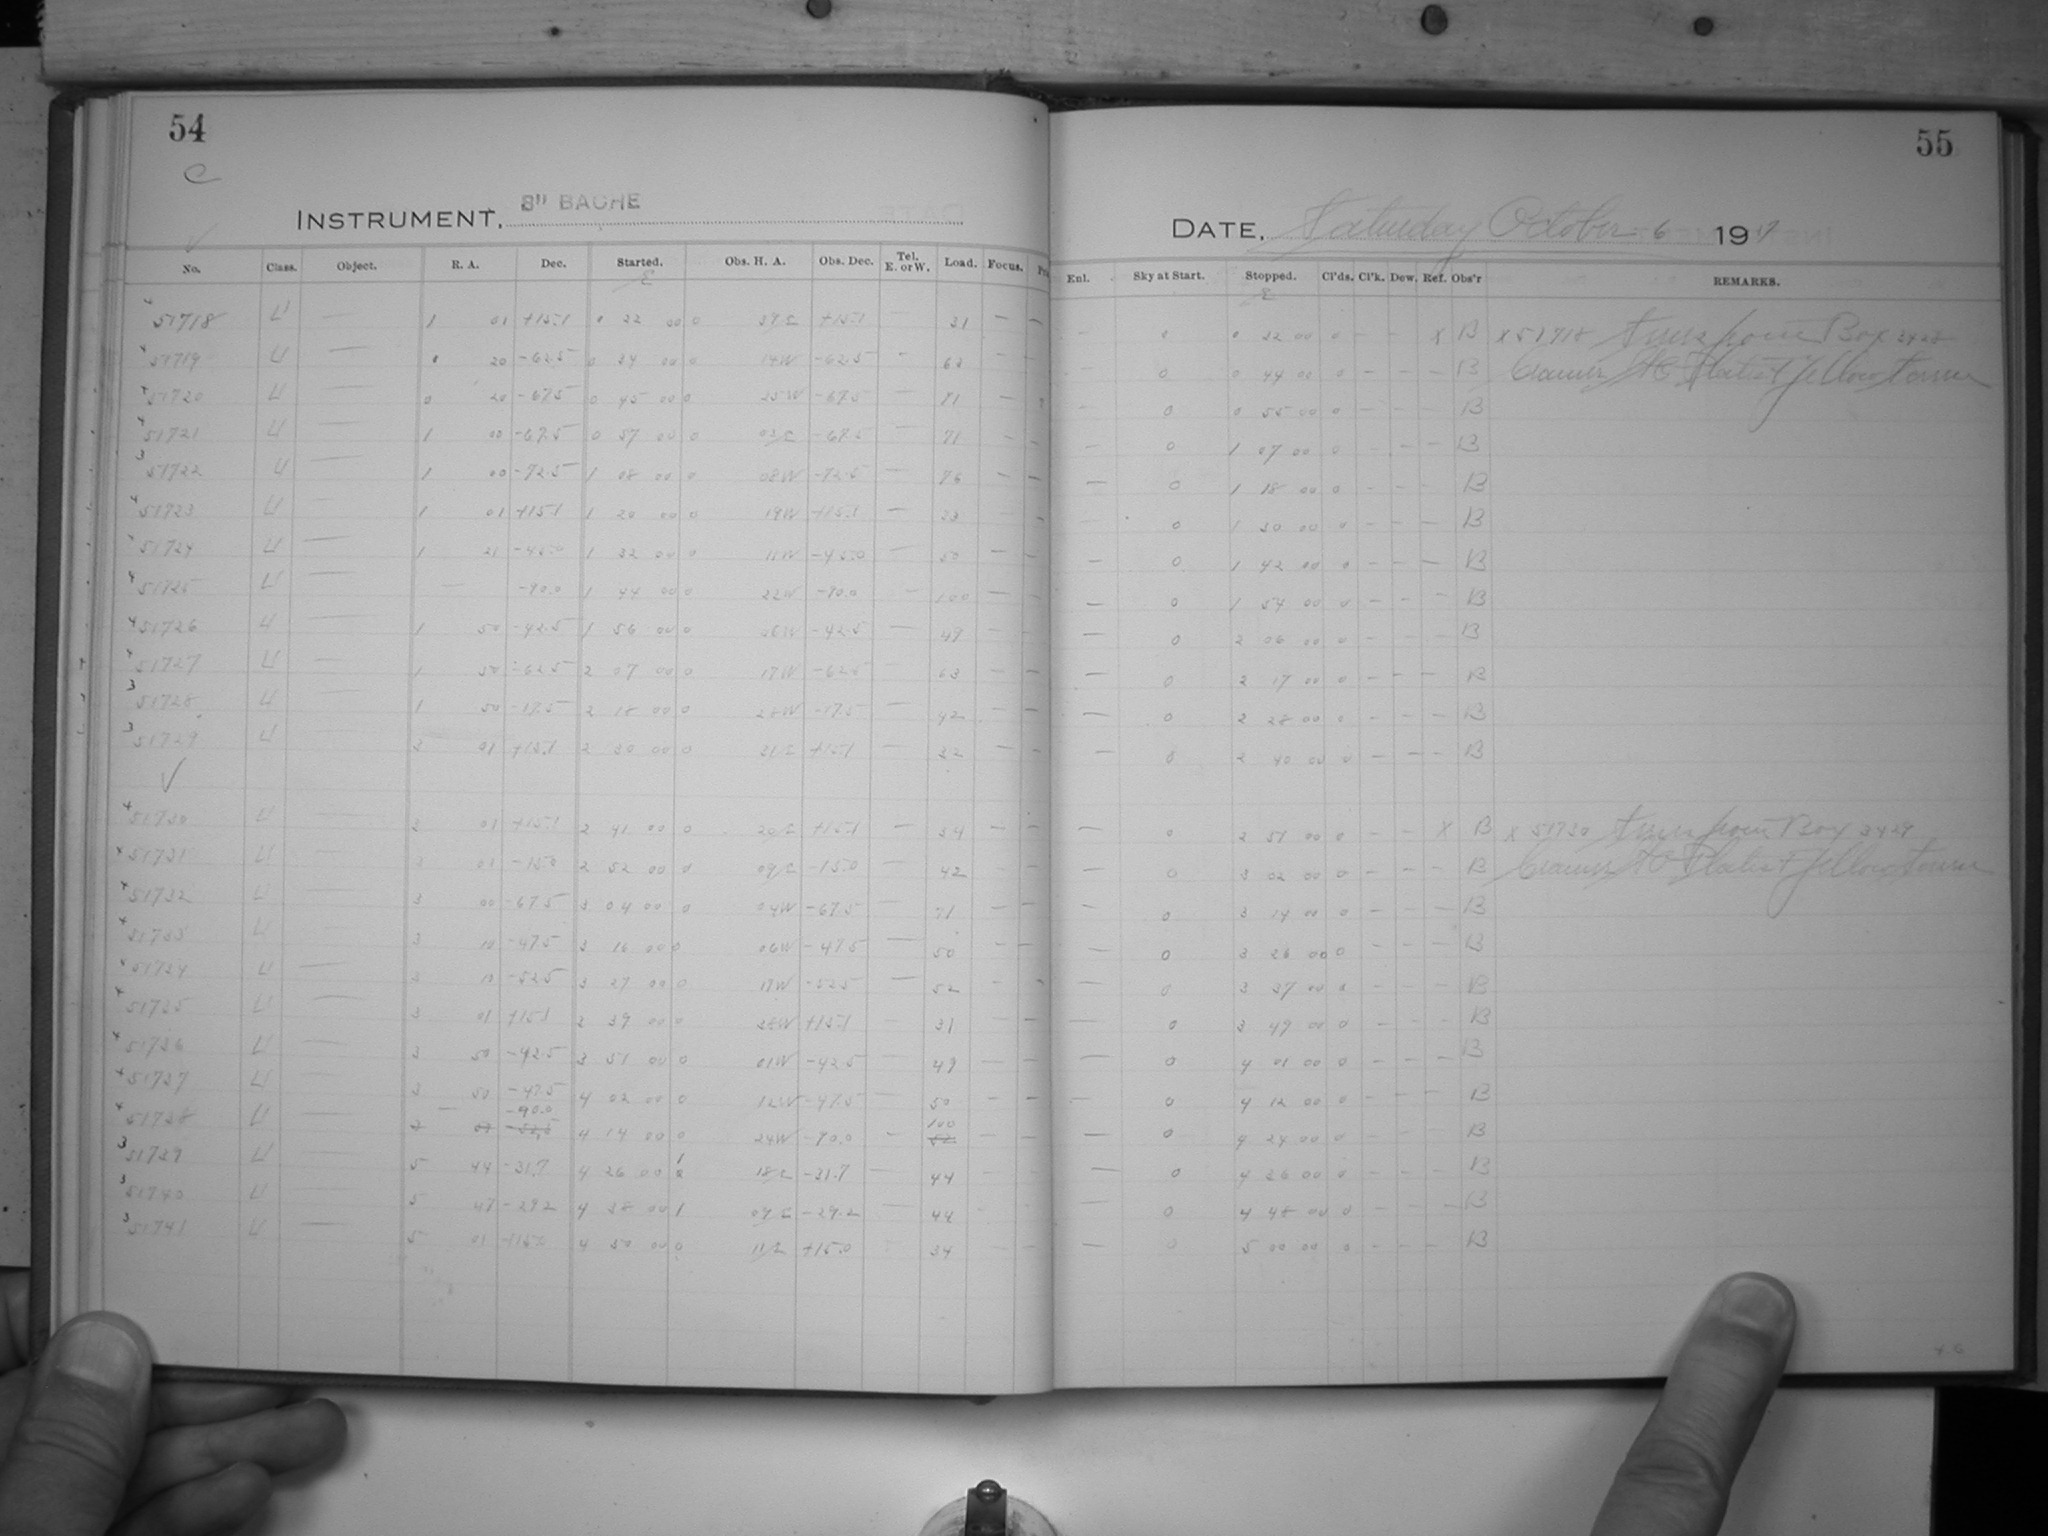 54
C
INSTRUMENT, 8" BACHE
No. Class. Object. R. A. Dec. Started. Obs. H. A. Obs. Dec. Tel. E. or W. Load. Focus.
51718 U — 1 01 +15.1 0 22 00 0 39E +15.1 — 31 — —
51719 U — 0 20 -62.5 0 34 00 0 14W -62.5 - 63 — —
51720 U — 0 20 -67.5 0 45 00 0 25W -67.5 — 71 —
51721 U — 1 00 -67.5 0 57 00 0 03E -67.5 — 71 — —
51722 U — 1 00 -72.5 1 08 00 0 08W -72.5 — 76 — —
51723 U — 1 01 +15.1 1 20 00 0 19W +15.1 — 33 —
51724 U — 1 21 -45.0 1 32 00 0 11W -45.0 — 50 —
51725 U — — -90.0 1 44 00 0 22W -90.0 — 100 —
51726 U — 1 50 -42.5 1 56 00 0 06W -42.5 — 49 —
51727 U — 1 50 -62.5 2 07 00 0 17W -62.5 — 63 —
51728 U — 1 50 -17.5 2 18 00 0 28W -17.5 — 42 —
51729 U — 3 01 +15.1 2 30 00 0 31E +15.1 — 32 —
51730 U — 3 01 +15.1 2 41 00 0 20E +15.1 — 34 —
51731 U — 3 01 -15.0 2 52 00 0 09E -15.0 — 42 —
51732 U — 3 00 -67.5 3 04 00 0 04W -67.5 — 71 —
51733 U — 3 10 -47.5 3 16 00 0 06W -47.5 — 50 —
51734 U — 3 10 -52.5 3 27 00 0 17W -52.5 — 52 —
51735 U — 3 01 +15.1 3 39 00 0 38W +15.1 — 31 —
51736 U — 3 50 -42.5 3 51 00 0 01W -42.5 — 49 —
51737 U — 3 50 -47.5 4 02 00 0 12W -47.5 — 50 —
51738 U — — -90.0 4 14 00 0 24W -90.0 - 100 —
51739 U — 5 44 -31.7 4 26 00 1 18E -31.7 — 44 —
51740 U — 5 47 -29.2 4 38 00 1 09E -29.2 — 44
51741 U — 5 01 +15.0 4 50 00 0 11E +15.0 34 —
55
DATE, Saturday October 6 1917
Enl. Sky at Start. Stopped. Cl'ds. Cl'k. Dew. Ref. Obs'r REMARKS.
0 0 32 00 0 — — X B X 51718 Box 3428
0 0 44 00 0 — — — B Cramer Plates Yellow
0 0 55 00 0 — — — B
0 1 07 00 0 — — — B
0 1 18 00 0 — — — B
0 1 30 00 0 — — — B
0 1 42 00 0 — — — B
0 1 54 00 0 — — — B
0 2 06 00 0 — — — B
0 2 17 00 0 — — — B
0 2 28 00 0 — — — B
0 2 40 00 0 — — — B
0 2 51 00 0 — — X B X 51730 Box 3429
0 3 02 00 0 — — — B Cramer Plates Yellow
0 3 14 00 0 — — — B
0 3 26 00 0 — — — B
0 3 37 00 0 — — — B
0 3 49 00 0 — — — B
0 4 01 00 0 — — — B
0 4 12 00 0 — — — B
0 4 24 00 0 — — — B
0 4 36 00 0 — — — B
0 4 48 00 0 — — — B
0 5 00 00 0 — — — B